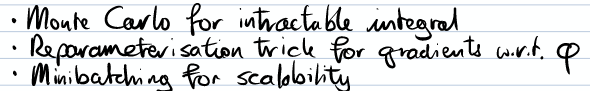 · Monte Carlo for intractable integral
· Reparameterisation trick for gradients w.r.t. φ
· Minibatching for scalability